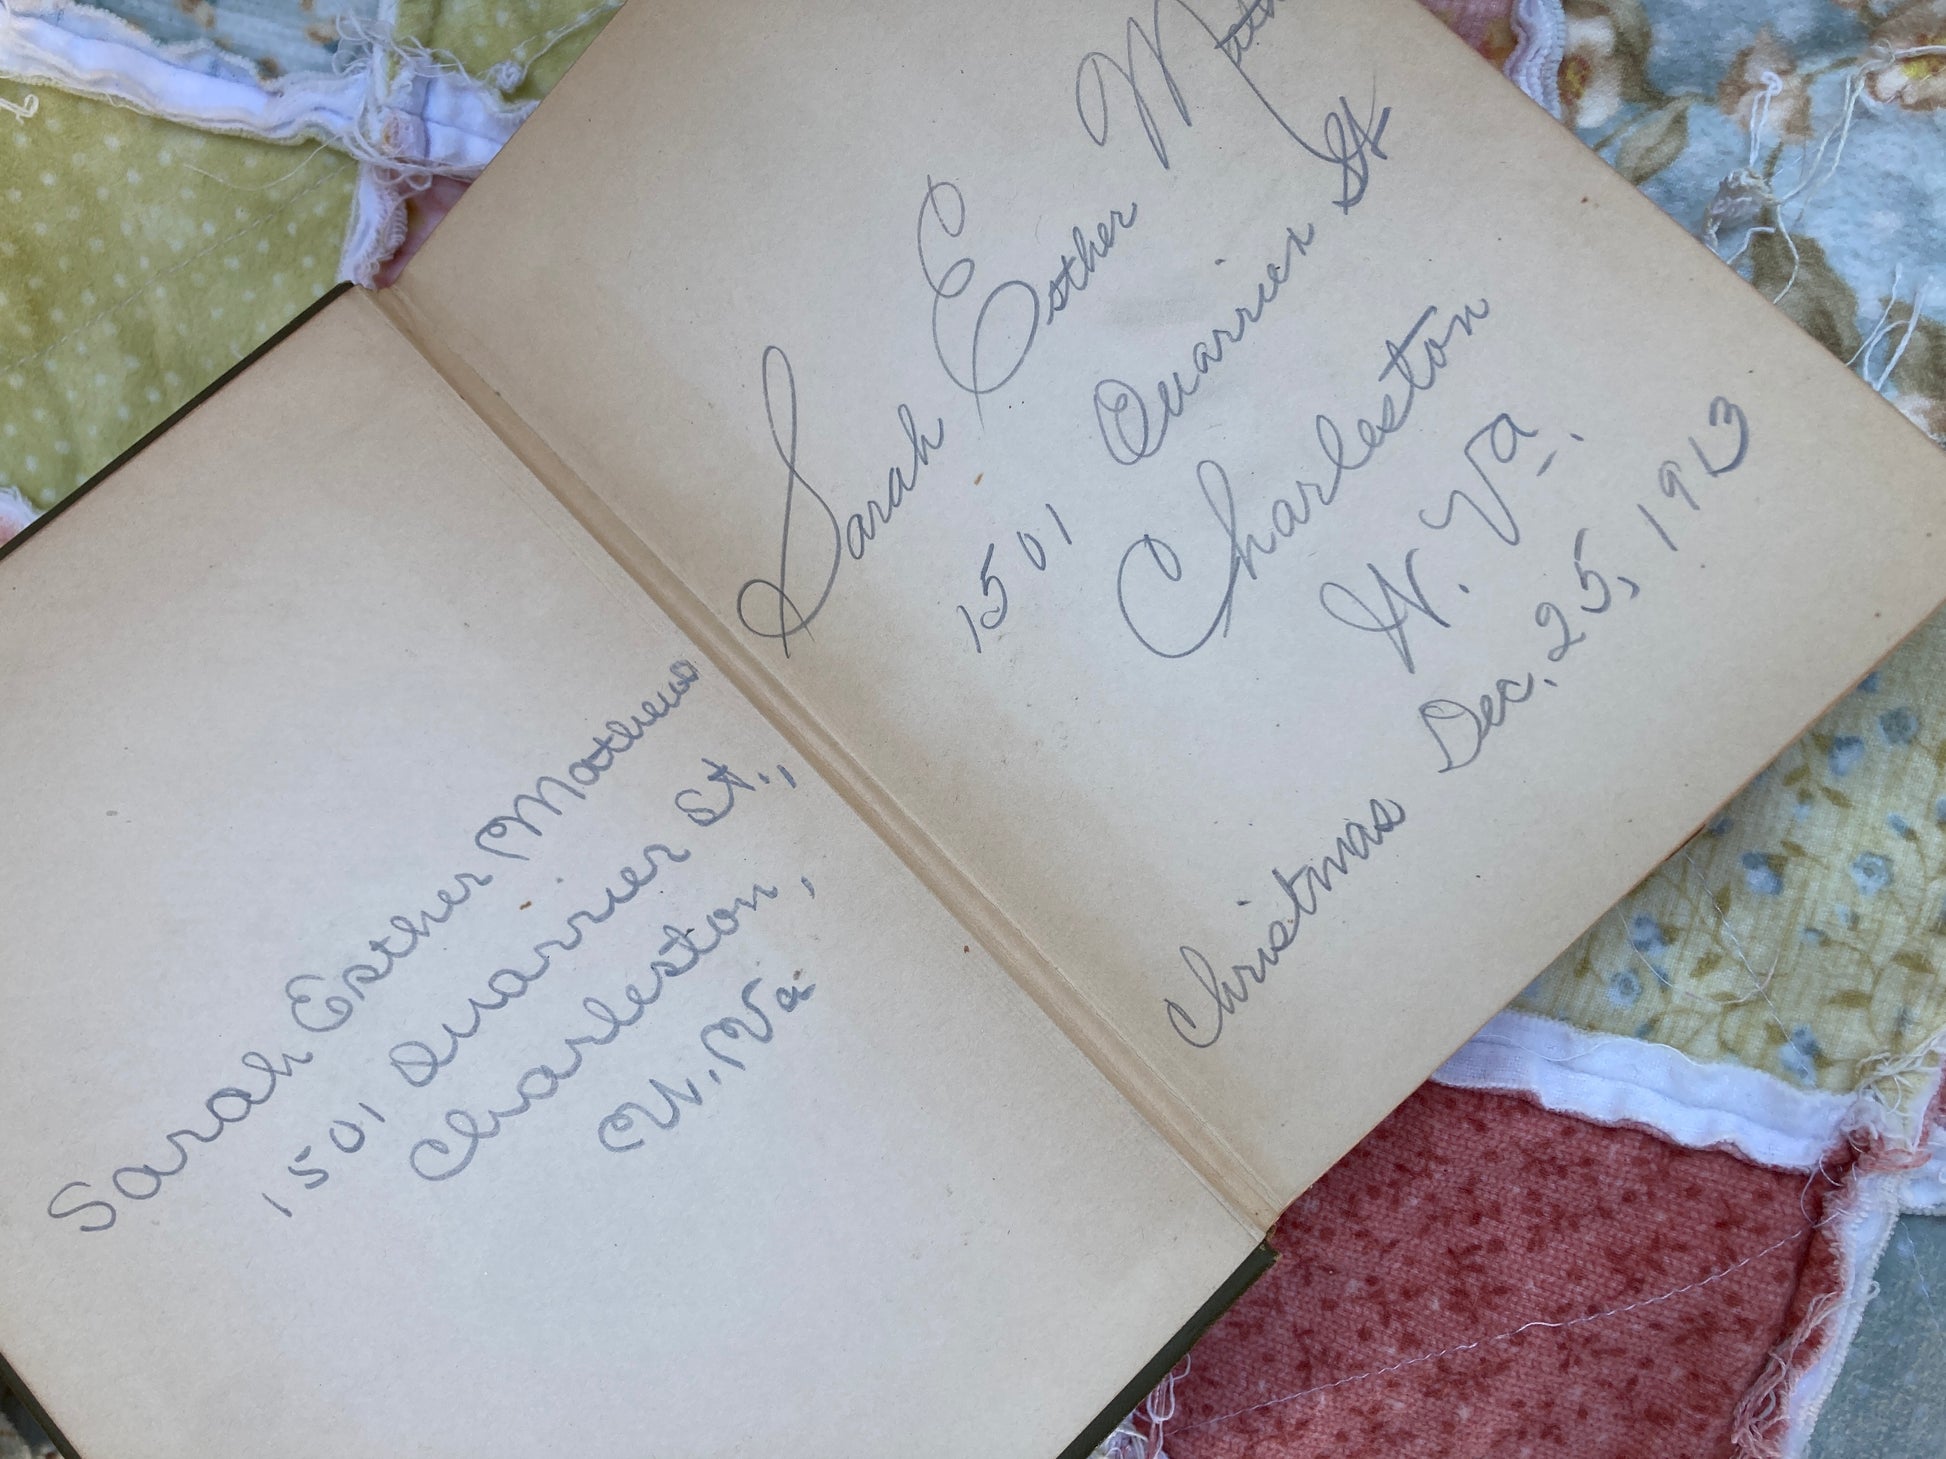 Sarah Esther Mathews
1501 Quarrier St.,
Charleston,
W. Va
Sarah Esther
1501 Quarrier St
Charleston
W. Va.
Christmas Dec. 25, 1913